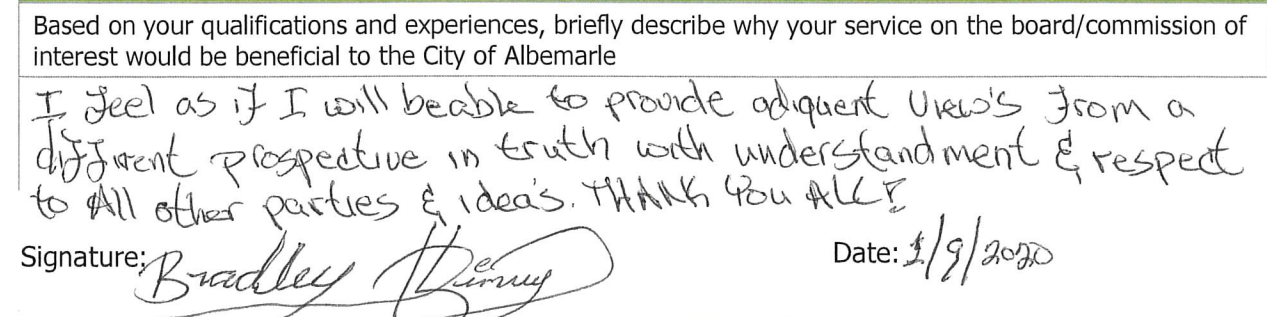 Based on your qualifications and experiences, briefly describe why your service on the board/commission of
interest would be beneficial to the City of Albemarle
I feel as if I will beable to provide adiquent View's from a
different prospective in truth with understandment & respect
to All other parties & idea's. THANK You ALL!
Signature: Bradley
Date: 1/9/2020